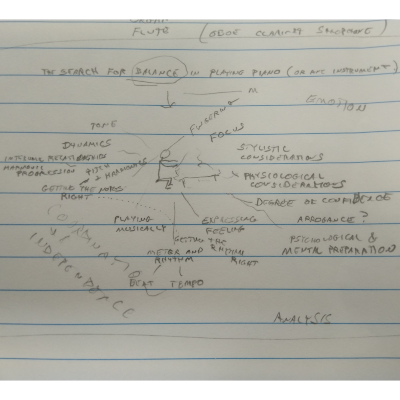 FLUTE (OBOE CLARINET SAXOPHONE
THE SEARCH FOR BALANCE IN PLAYING PIANO (OR ANY INSTRUMENT)
EMOTION
TONE
FINGERING
FOCUS
DYNAMICS
STYLISTIC
CONSIDERATIONS
INTERVAL RELATIONSHIPS
HARMONIC PROGRESSION
PITCH & HARMONICS
PHYSIOLOGICAL
CONSIDERATIONS
GETTING THE NOTES
RIGHT
DEGREE OF CONFIDENCE
ARROGANCE?
PLAYING
MUSICALLY
EXPRESSING
FEELING
PSYCHOLOGICAL &
MENTAL PREPARATION
COORDINATION
VS
INDEPENDENCE
GETTING THE
METER AND RHYTHM
RIGHT
RHYTHM
BEAT TEMPO
ANALYSIS